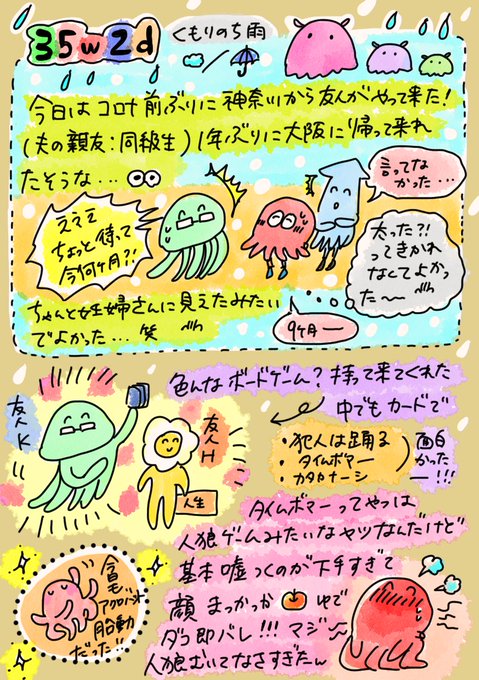 35w2d
くもりのち雨
今日はコロナ前ぶりに神奈川から友人がやって来た!
(夫の親友:同級生)1年ぶりに大阪に帰って来れ
たそうな…
言ってな
かった…
えええ
ちょっと待って
今何ヶ月?!
太った?!
ってきかれ
なくてよかっ
た〜
ちゃんと妊婦さんに見えたみたい
でよかった…笑
9ヶ月ー
色んなボードゲーム?持って来てくれた
中でもカードで
友人K
友人H
人生
・犯人は踊る
・タイムボマー
・カタカナーシ
面白
かった
ー!!!
タイムボマーってやつは
人狼ゲームみたいなヤツなんだけど
基本嘘つくのが下手すぎて
顔まっかっかゆで
ダコ即バレ!!!マジ
人狼むいてなさすぎたん
今日も
アクロバット
胎動
だった!!